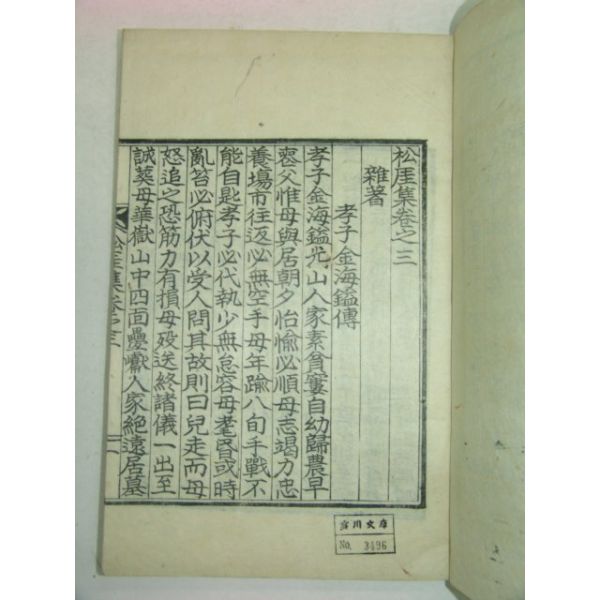 松厓集卷之三
雜著
孝子金海鎰傳
孝子金海鎰光山人家素貧窶自幼歸農早
喪父惟母與居朝夕怡愉必順母志竭力忠
養場市往返必無空手母年踰八旬手戰不
能自匙孝子必代執少無怠容母耄昏或時
亂笞必俯伏以受人問其故則曰兒走而母
怒追之恐筋力有損母歿送終諸儀一出至
誠葬母華嶽山中四面疊巘人家絶遠居墓
松厓集卷之三
一
雲川文庫
No. 3496